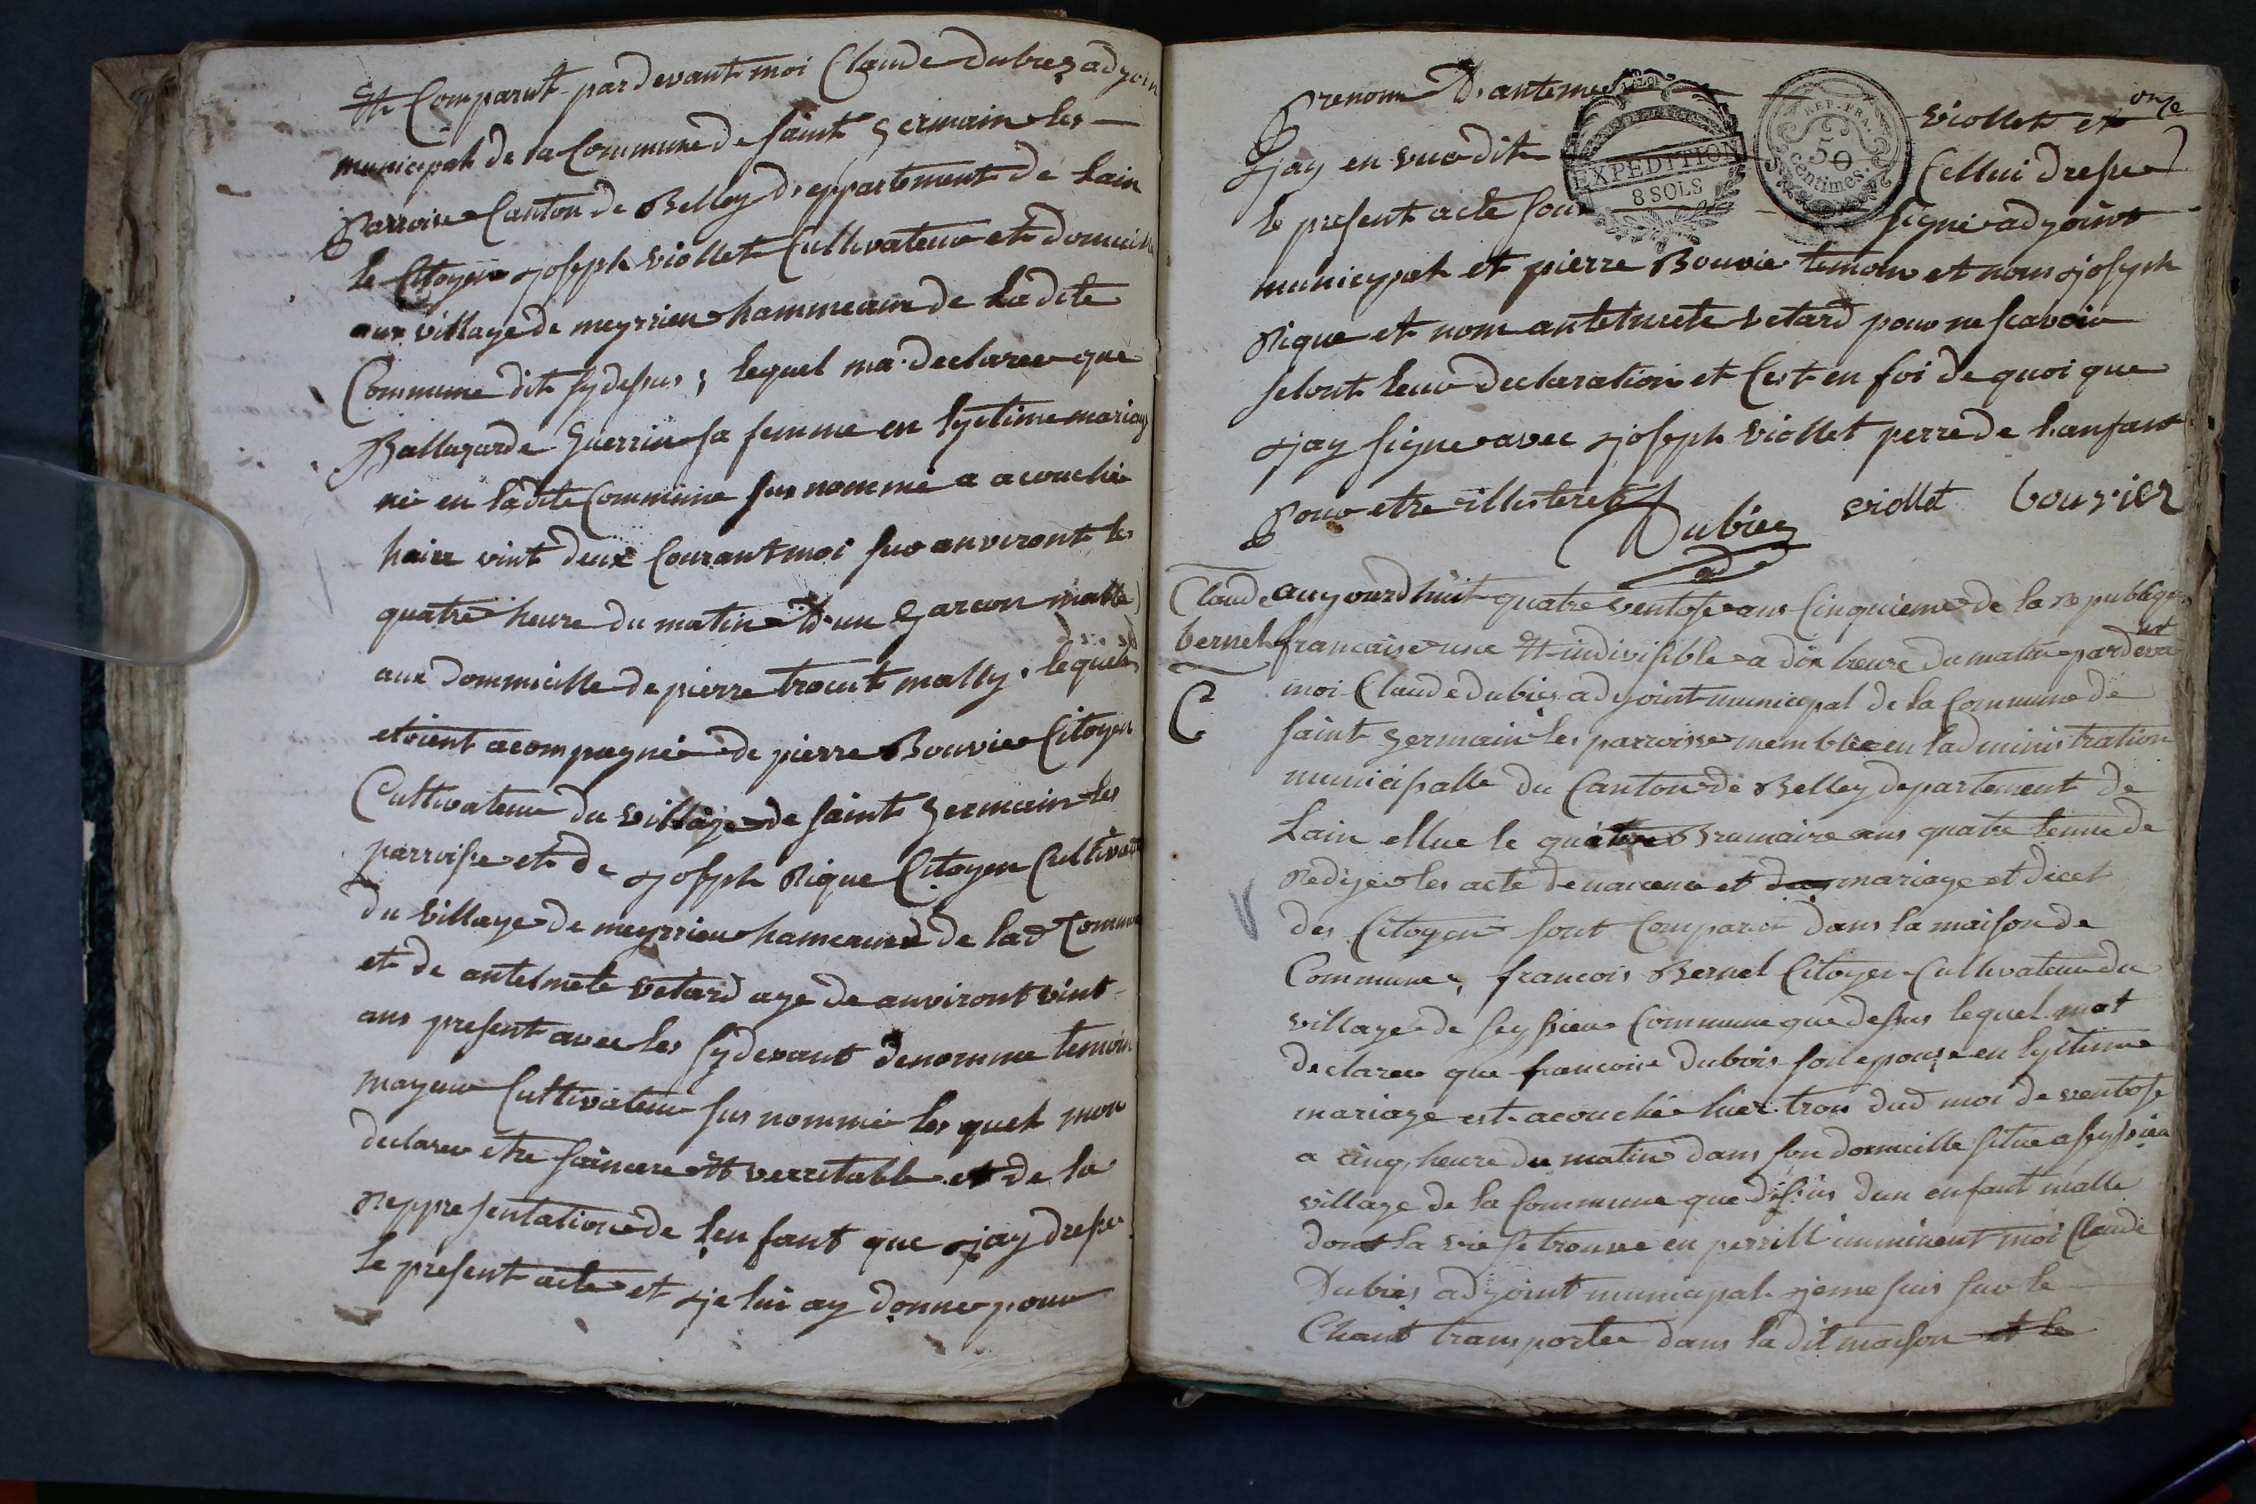 Et Comparut pardevant moi Claude dubiez adjoin
municipal de la Commune de saint Germain les
parroise Canton de Belley deppartement de Lain
le Citoyen joseph viollet Cultivateur et domicill
aux village de meyrrieu hammeaux de La dite
Commune dit sydessus ; lequel ma declaree que
Ballazarde Guerrin sa femme en lyetime mariag
ne en ladite Commune sus nommé a acouchée
haire vint deux Courant moi sur anviront les
quatre heure du matin d'un Garcon malle
aux dommicille de pierre trocut mally lequels
etoient acompagnée de pierre Bouvier Citoyen
Cultivateur du village de saint Germain les
parroisse et de joseph Rique Citoyen Cultivat
du village de meyrrieu hameaux de lad Commu
et de antelmete vetard age de anviront vint
ans present avec les sydevant denomme temoin
mayeur Cultivateur sus nommée les quel mon
declaree etre saincere Et verritable et de la
Reppresentation de len fant que jay dresse
le present acte et je lui ay donne pour
prenom D'anteme viollet et onze
jay en vue dit Cellui dresse
le present acte sous signe adjoint
municypal et pierre Bouvie temoin et nom joseph
Rique et nom antelmete vetard pour ne scavoir
selont leur declaration et Cest en foi de quoi que
jay signe avec joseph viollet perre de Lanfant
pour etre illisteree
Dubiez viollet bouvier
adj
EXPEDITION
8 SOLS
REP. FRA.
50
Centimes.
Claude
bernel
aujourdhuit quatre ventose ans Cinquieme de la Republique
francaise une Et indivisible a dix heure du matin pardevant
moi Claude dubiez adjoint municipal de la Commune de
saint germain les parroisse membre en ladministration
municipalle du Canton de Belley departement de
Lain ellue le quatre Brumaire ans quatre
Redige les acte de naicence et mariage et decet
des Citoyen sont Comparer dans la maison de
Commune, francois Bernel Citoyen Cultivateur du
village de seyssieu Commune que dessus lequel mat
declaree que francoise dubois son epouse en lyetime
mariage est acouchée hier trois dud moi de ventose
a cinq heure du matin dans son domicille situe a seyssieu
village de la Commune que dessus dun enfant malle
dont la vie se trouve en perrill imminent moi Claude
Dubiez adjoint municipal je me suis sur le
Chant transporter dans ladit maison et le